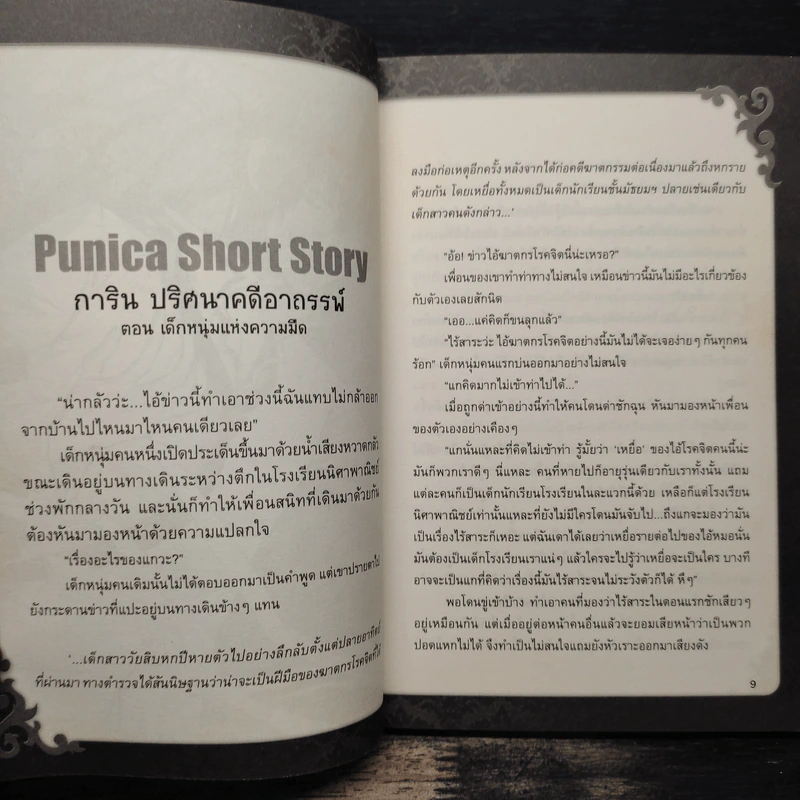 Punica Short Story
การิน ปริศนาคดีอาถรรพ์
ตอน เด็กหนุ่มแห่งความมืด
“น่ากลัวว่ะ...ไอ้ข่าวนี้ทำเอาช่วงนี้ฉันแทบไม่กล้าออก
จากบ้านไปไหนมาไหนคนเดียวเลย”
เด็กหนุ่มคนหนึ่งเปิดประเด็นขึ้นมาด้วยน้ำเสียงหวาดกลัว
ขณะเดินอยู่บนทางเดินระหว่างตึกในโรงเรียนนิศาพาณิชย์
ช่วงพักกลางวัน และนั่นก็ทำให้เพื่อนสนิทที่เดินมาด้วยกัน
ต้องหันมามองหน้าด้วยความแปลกใจ
“เรื่องอะไรของแกวะ?”
เด็กหนุ่มคนเดิมนั้นไม่ได้ตอบออกมาเป็นคำพูด แต่เขาปรายตาไป
ยังกระดานข่าวที่แปะอยู่บนทางเดินข้างๆ แทน
‘...เด็กสาววัยสิบหกปีหายตัวไปอย่างลึกลับตั้งแต่ปลายอาทิตย์
ที่ผ่านมา ทางตำรวจได้สันนิษฐานว่าน่าจะเป็นฝีมือของฆาตกรโรคจิตที่ได้
ลงมือก่อเหตุอีกครั้ง หลังจากได้ก่อคดีฆาตกรรมต่อเนื่องมาแล้วถึงหกราย
ด้วยกัน โดยเหยื่อทั้งหมดเป็นเด็กนักเรียนชั้นมัธยมฯ ปลายเช่นเดียวกับ
เด็กสาวคนดังกล่าว...’
“อ้อ! ข่าวไอ้ฆาตกรโรคจิตนี่น่ะเหรอ?”
เพื่อนของเขาทำท่าทางไม่สนใจ เหมือนข่าวนี้มันไม่มีอะไรเกี่ยวข้อง
กับตัวเองเลยสักนิด
“เออ...แค่คิดก็ขนลุกแล้ว”
“ไร้สาระว่ะ ไอ้ฆาตกรโรคจิตอย่างนี้มันไม่ได้จะเจอง่ายๆ กันทุกคน
ร้อก” เด็กหนุ่มคนแรกบ่นออกมาอย่างไม่สนใจ
“แกคิดมากไม่เข้าท่าไปได้...”
เมื่อถูกด่าเข้าอย่างนี้ทำให้คนโดนด่าชักฉุน หันมามองหน้าเพื่อน
ของตัวเองอย่างเคืองๆ
“แกนั่นแหละที่คิดไม่เข้าท่า รู้มั้ยว่า ‘เหยื่อ’ ของไอ้โรคจิตคนนี้น่ะ
มันก็พวกเราดีๆ นี่แหละ คนที่หายไปก็อายุรุ่นเดียวกับเราทั้งนั้น แถม
แต่ละคนก็เป็นเด็กนักเรียนโรงเรียนในละแวกนี้ด้วย เหลือก็แต่โรงเรียน
นิศาพาณิชย์เท่านั้นแหละที่ยังไม่มีใครโดนมันจับไป...ถึงแกจะมองว่ามัน
เป็นเรื่องไร้สาระก็เหอะ แต่ฉันเดาได้เลยว่าเหยื่อรายต่อไปของไอ้หมอนั่น
มันต้องเป็นเด็กโรงเรียนเราแน่ๆ แล้วใครจะไปรู้ว่าเหยื่อจะเป็นใคร บางที
อาจจะเป็นแกที่คิดว่าเรื่องนี้มันไร้สาระจนไม่ระวังตัวก็ได้ หึๆ”
พอโดนขู่เข้าบ้าง ทำเอาคนที่มองว่าไร้สาระในตอนแรกชักเสียวๆ
อยู่เหมือนกัน แต่เมื่ออยู่ต่อหน้าคนอื่นแล้วจะยอมเสียหน้าว่าเป็นพวก
ปอดแหกไม่ได้ จึงทำเป็นไม่สนใจแถมยังหัวเราะออกมาเสียงดัง
9